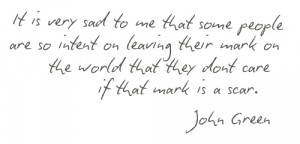 It is very sad to me that some people
are so intent on leaving their mark on
the world that they dont care
if that mark is a scar.
John Green